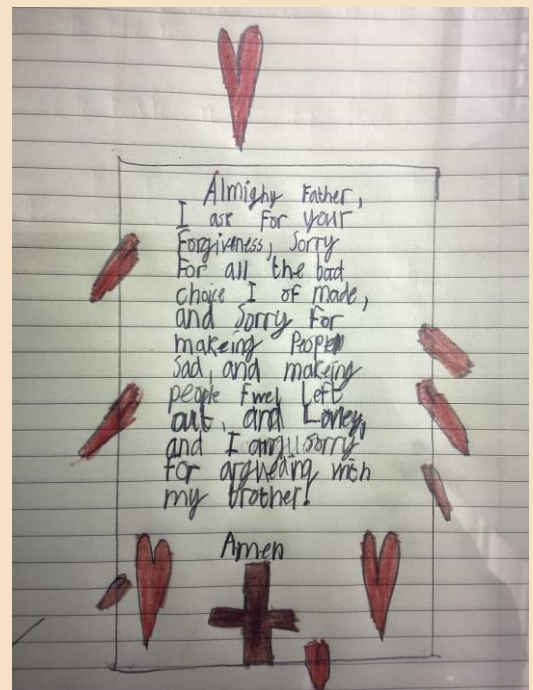 Almighy Father,
I ask For your
Forgiveness, Sorry
For all the bad
choice I of made,
and Sorry For
makeing
Sad, and makeing
people Fwel Left
out, and Loney,
and I am sorry
for argueing with
my brother.
Amen